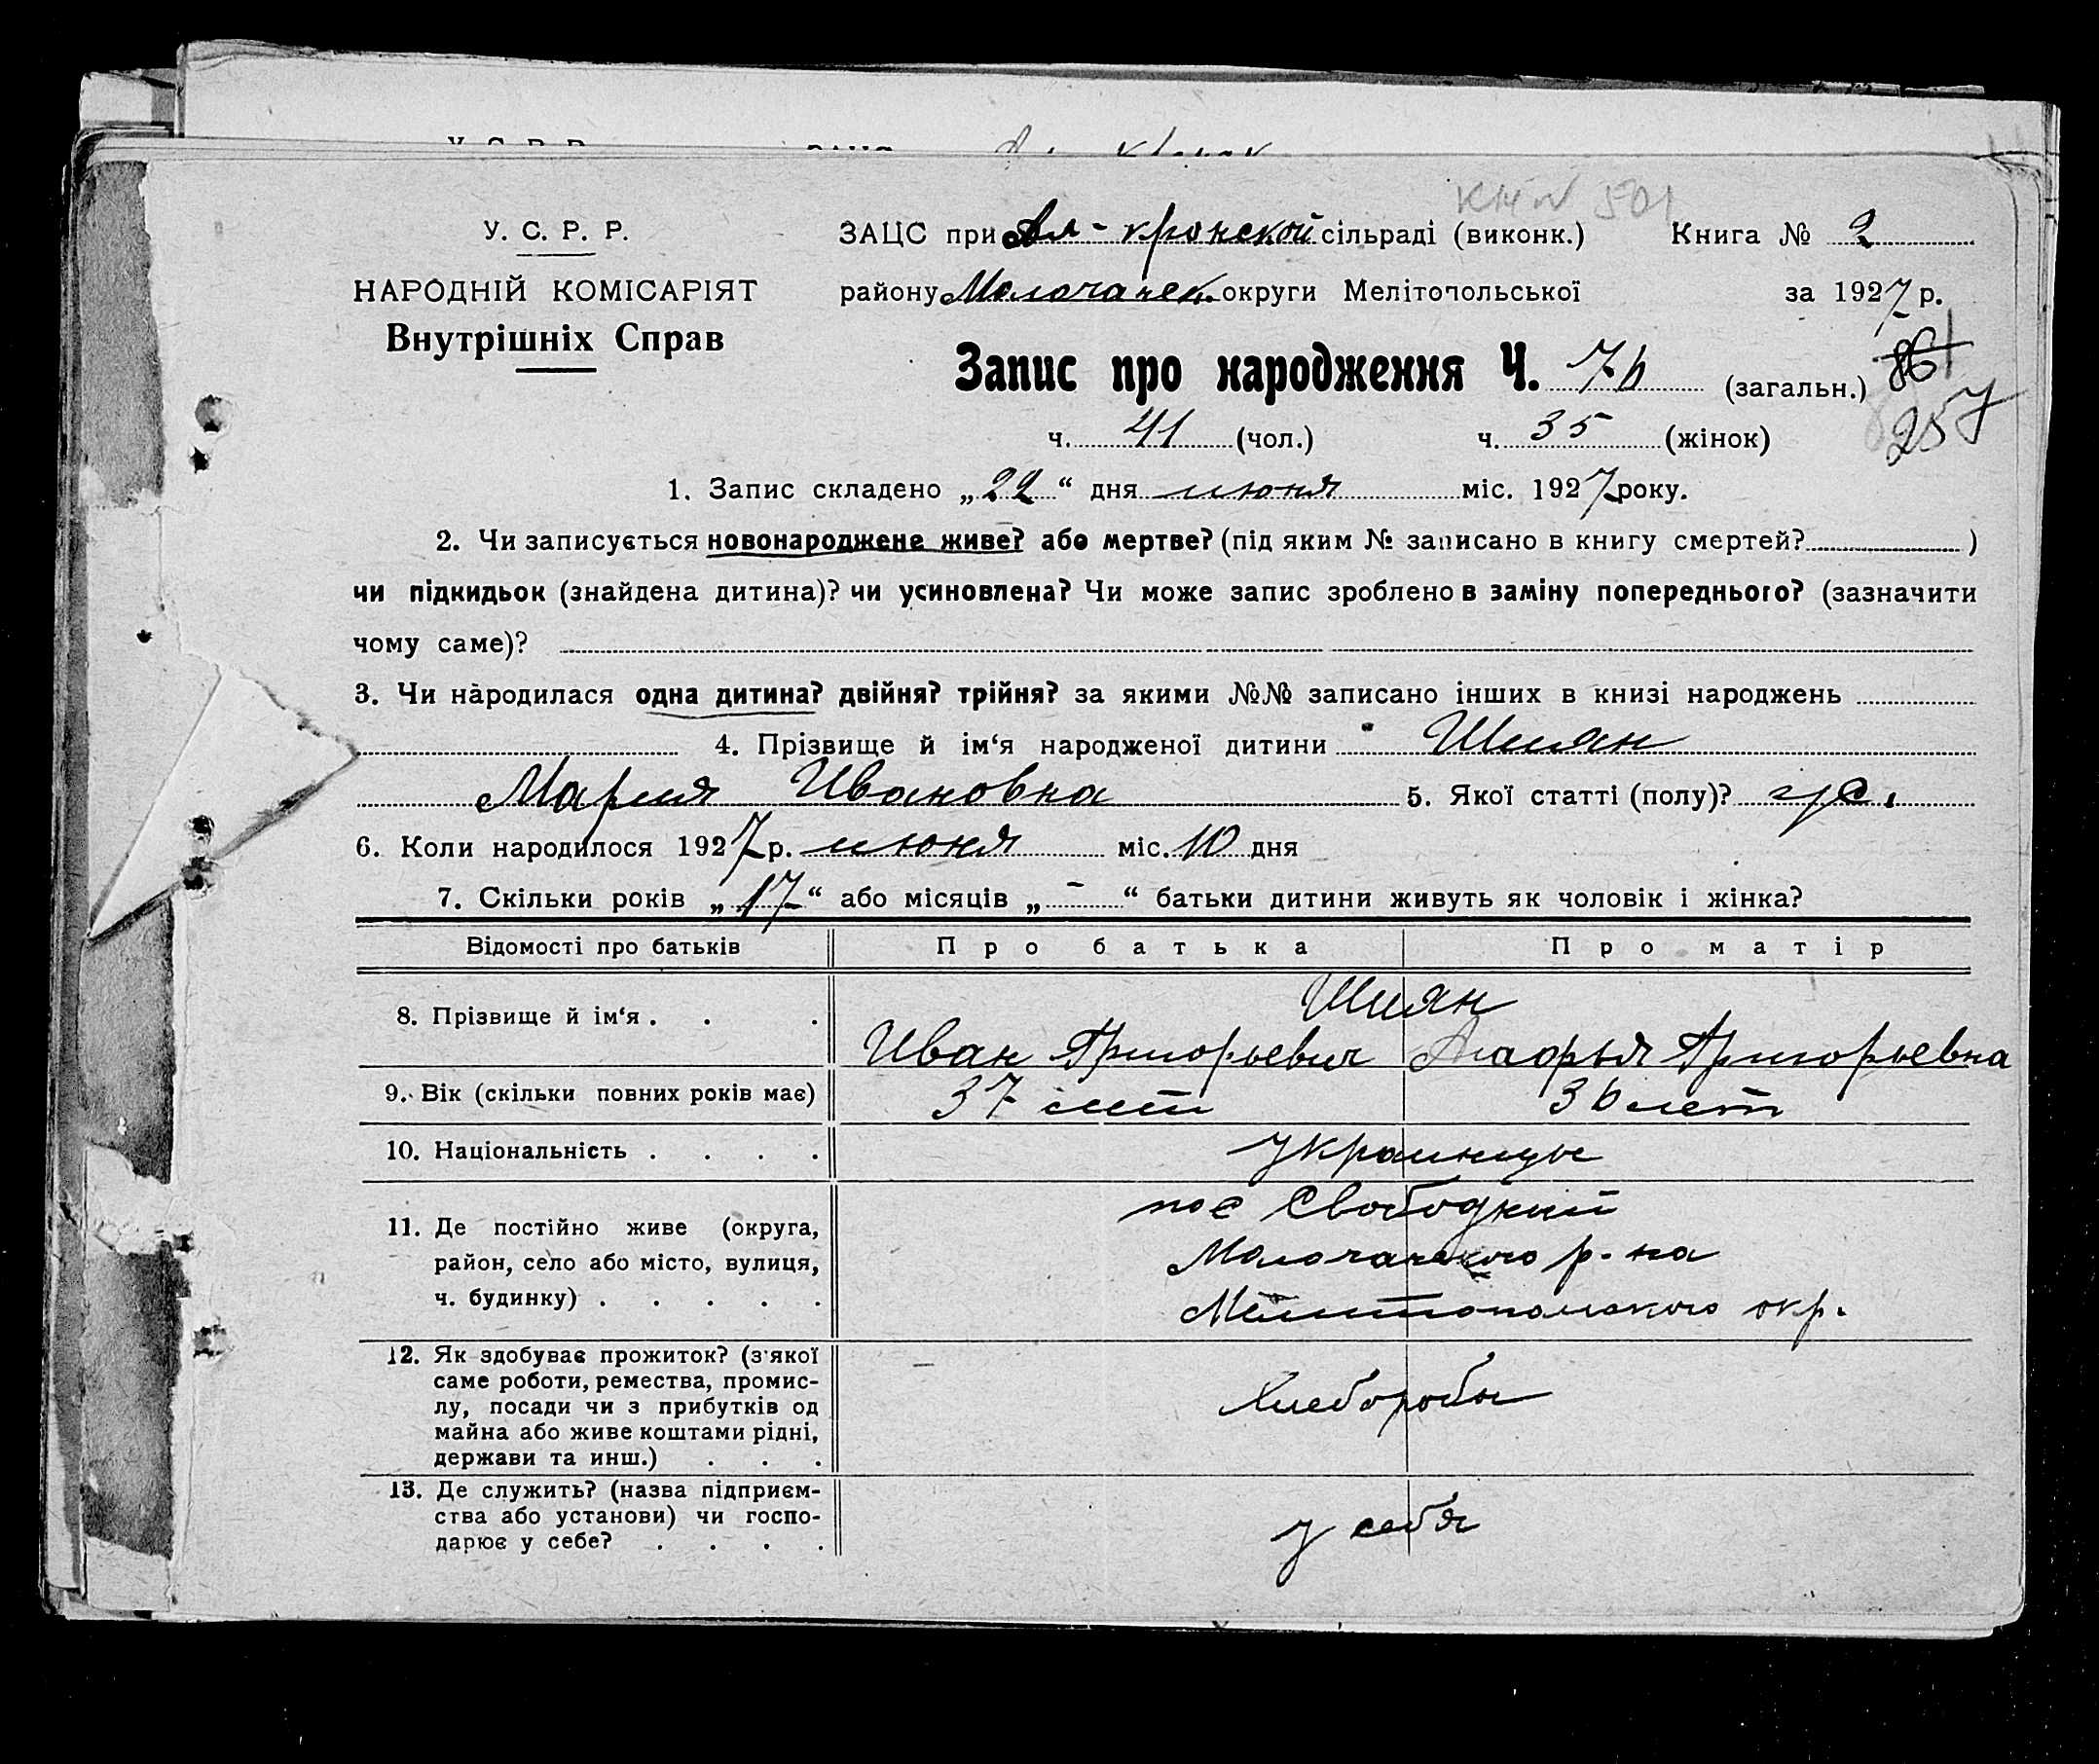 КН N 501
У. С. Р. Р.
НАРОДНІЙ КОМІСАРІЯТ
Внутрішніх Справ
ЗАЦС при Ал-кронской сільраді (виконк.) Книга № 2
району Молочанск. округи Мелітопольської за 1927 р.
Запис про народження Ч. 76 (загальн.) 86
257
ч. 41 (чол.) ч. 35 (жінок)
1. Запис складено „22“ дня июня міс. 1927 року.
2. Чи записується новонароджене живе? або мертве? (під яким № записано в книгу смертей? )
чи підкидьок (знайдена дитина)? чи усиновлена? Чи може запис зроблено в заміну попереднього? (зазначити
чому саме)?
3. Чи народилася одна дитина? двійня? трійня? за якими №№ записано інших в книзі народжень
4. Прізвище й ім‘я народженої дитини Шиян
Мария Ивановна 5. Якої статті (полу)? ж.
6. Коли народилося 1927 р. июня міс. 10 дня
7. Скільки років „17“ або місяців „-“ батьки дитини живуть як чоловік і жінка?
Відомості про батьків Про батька Про матір
8. Прізвище й ім‘я . . . Шиян
Иван Григорьевич Агафья Григорьевна
9. Вік (скільки повних років має) 37 лет 36 лет
10. Національність . . . . украинцы
11. Де постійно живе (округа,
район, село або місто, вулиця,
ч. будинку) . . . . .
пос Свободный
Молочанского р-на
Мелитопольского окр.
12. Як здобуває прожиток? (з'якої
саме роботи, ремества, промис-
лу, посади чи з прибутків од
майна або живе коштами рідні,
держави та инш.) . . .
Хлеборобы
13. Де служить? (назва підприєм-
ства або установи) чи госпо-
дарює у себе? . . . .
у себя